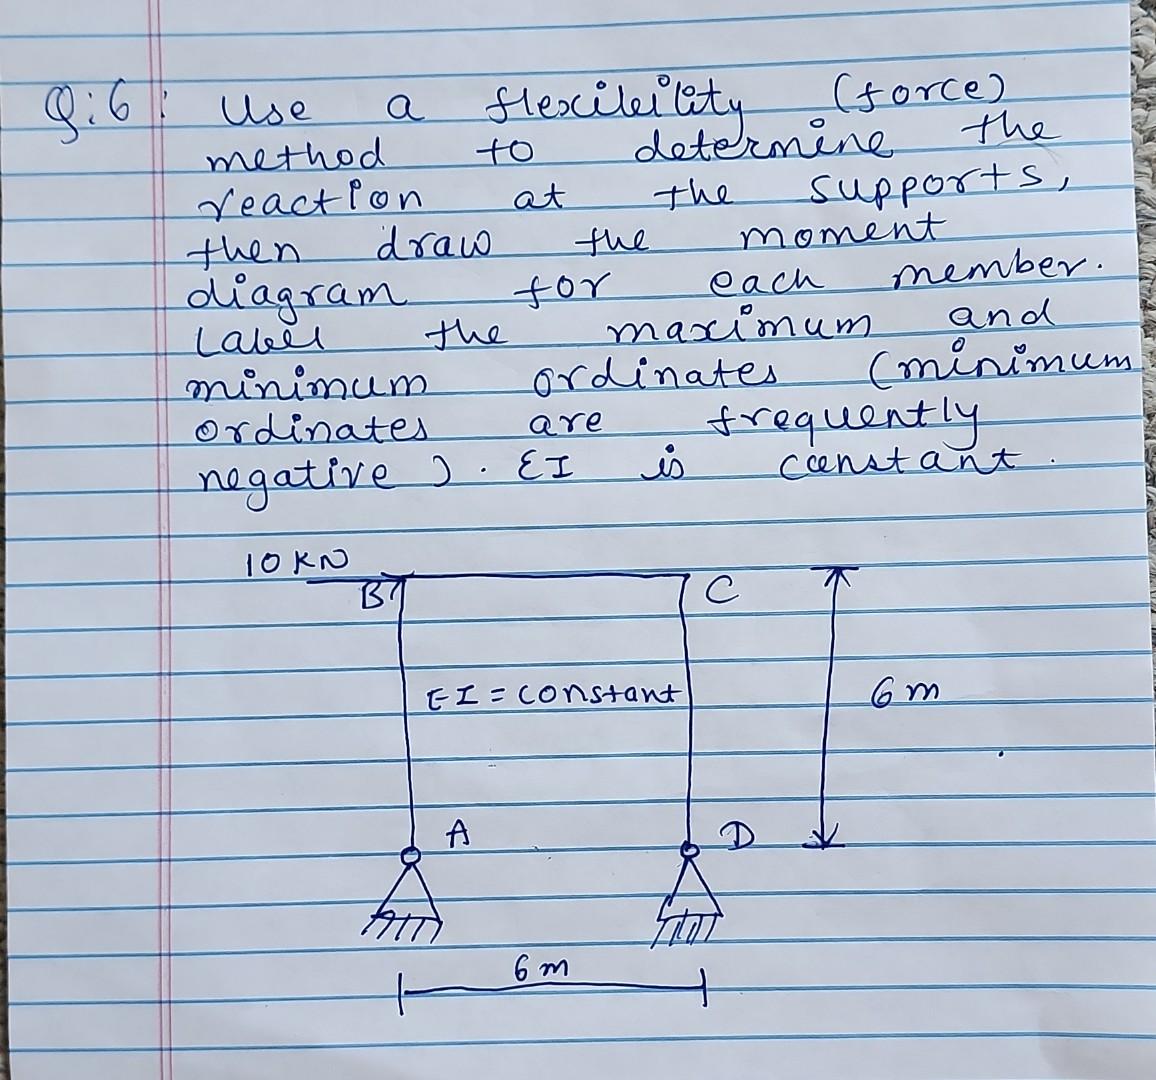 Q:6: Use a flexibility (force)
method to determine the
reaction at the supports,
then draw the moment
diagram for each member.
Label the maximum and
minimum ordinates (minimum
ordinates are frequently
negative). EI is constant.
10 KN
B C
EI = constant 6 m
A D
6 m